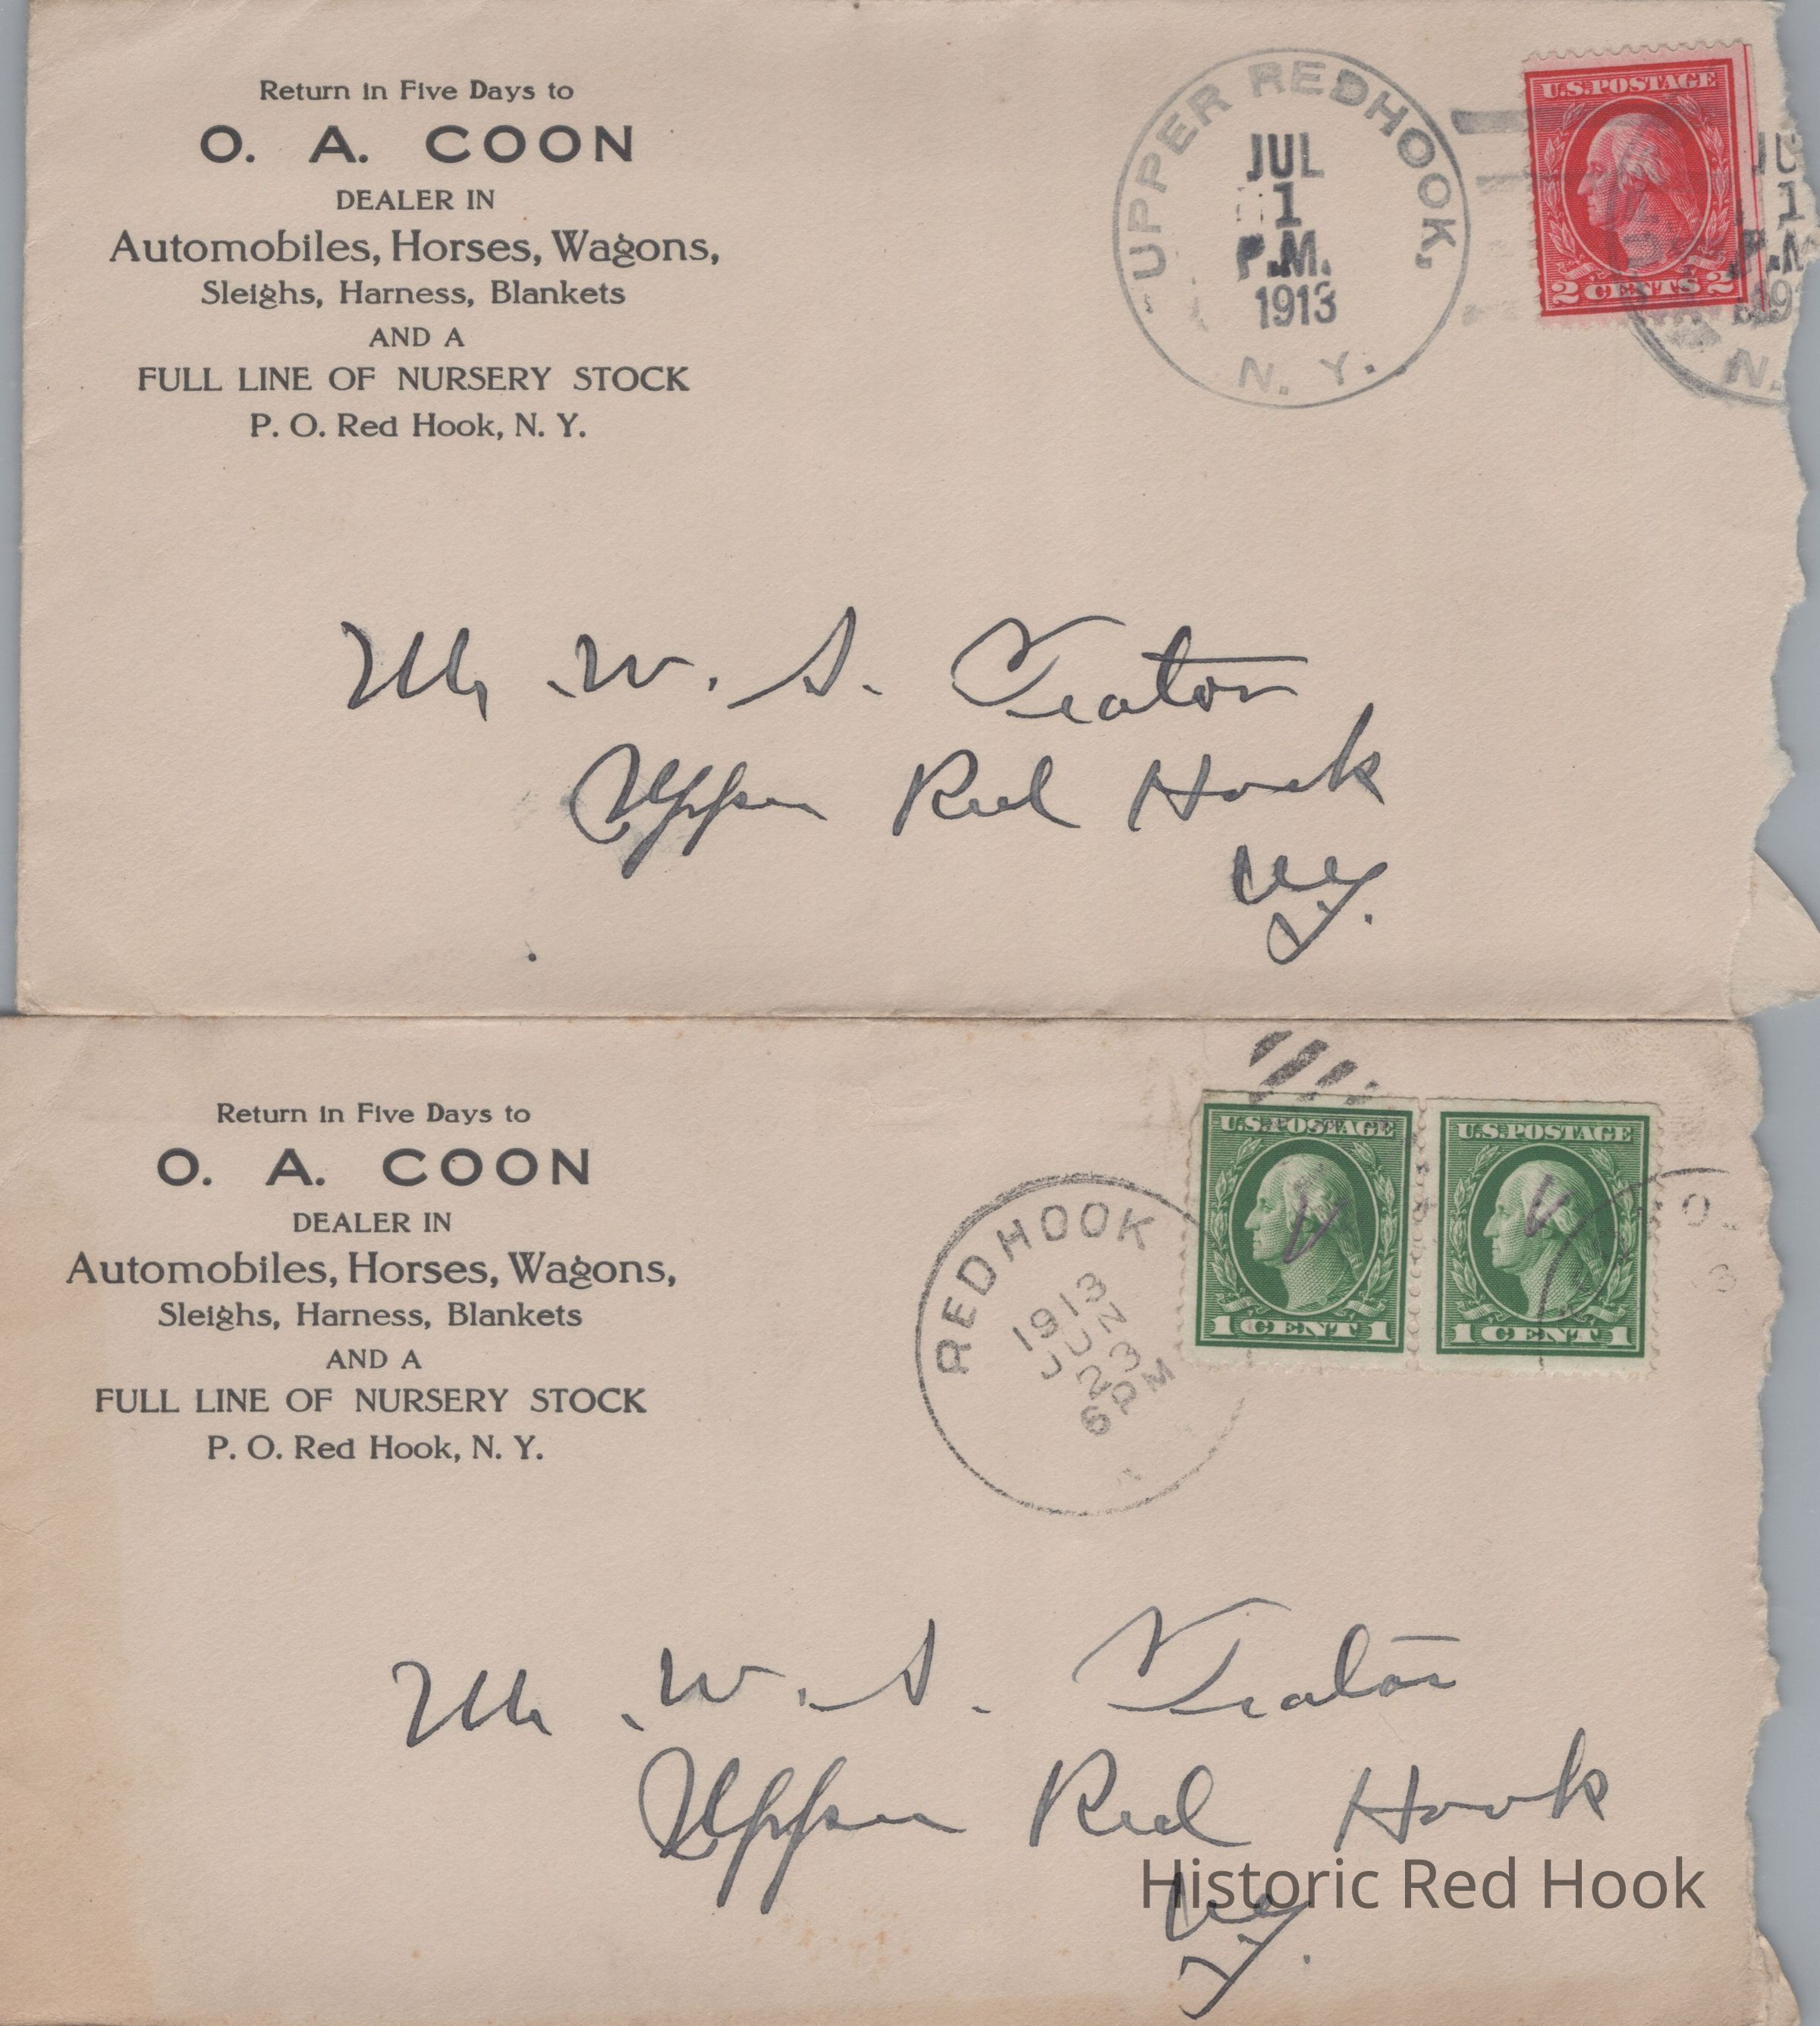 Return in Five Days to
O. A. COON
DEALER IN
Automobiles, Horses, Wagons,
Sleighs, Harness, Blankets
AND A
FULL LINE OF NURSERY STOCK
P. O. Red Hook, N. Y.
UPPER REDHOOK,
JUL
1
P.M.
1913
N. Y.
U.S. POSTAGE
2 CENTS 2
JU
1
P.M
191
N.
Mr. W. S. Teator
Upper Red Hook
N.Y.
Return in Five Days to
O. A. COON
DEALER IN
Automobiles, Horses, Wagons,
Sleighs, Harness, Blankets
AND A
FULL LINE OF NURSERY STOCK
P. O. Red Hook, N. Y.
REDHOOK
1913
JUN
23
6 PM
U.S. POSTAGE
1 CENT 1
U.S. POSTAGE
1 CENT 1
Mr. W. S. Teator
Upper Red Hook
N.Y.
Historic Red Hook